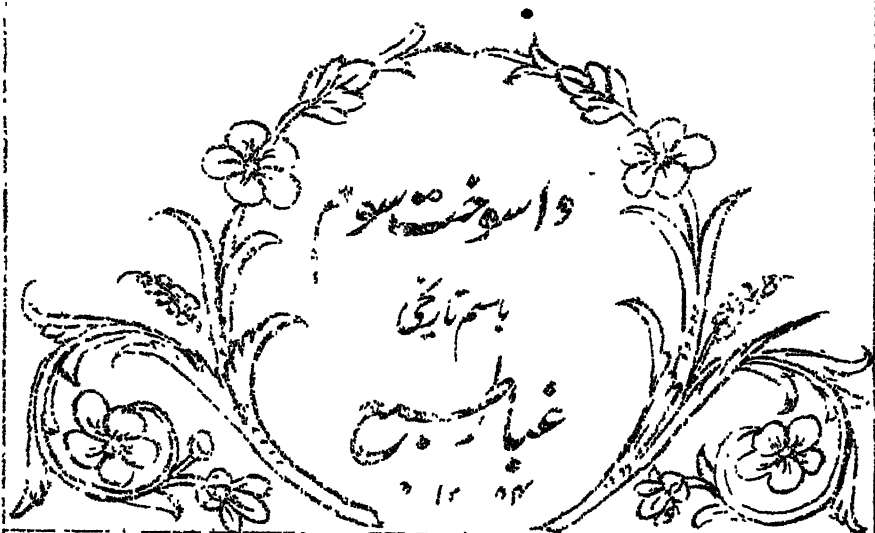 واسوخت سوم
باسم تاریخی
غبار طبع